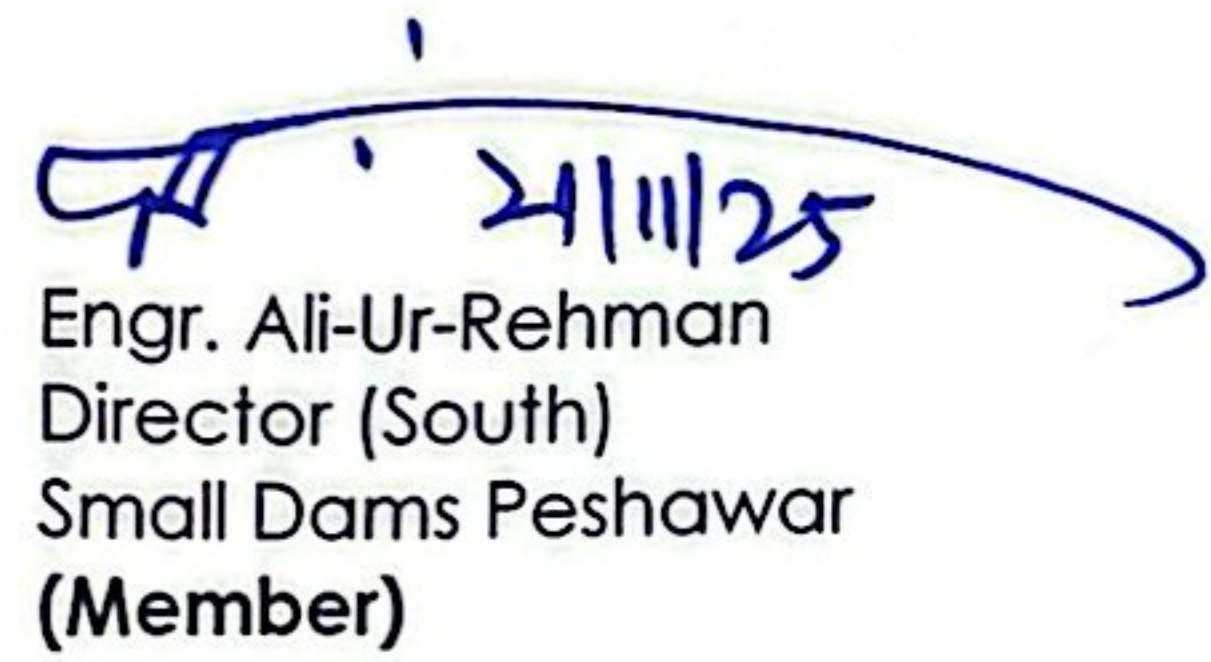 21/11/25
Engr. Ali-Ur-Rehman
Director (South)
Small Dams Peshawar
(Member)